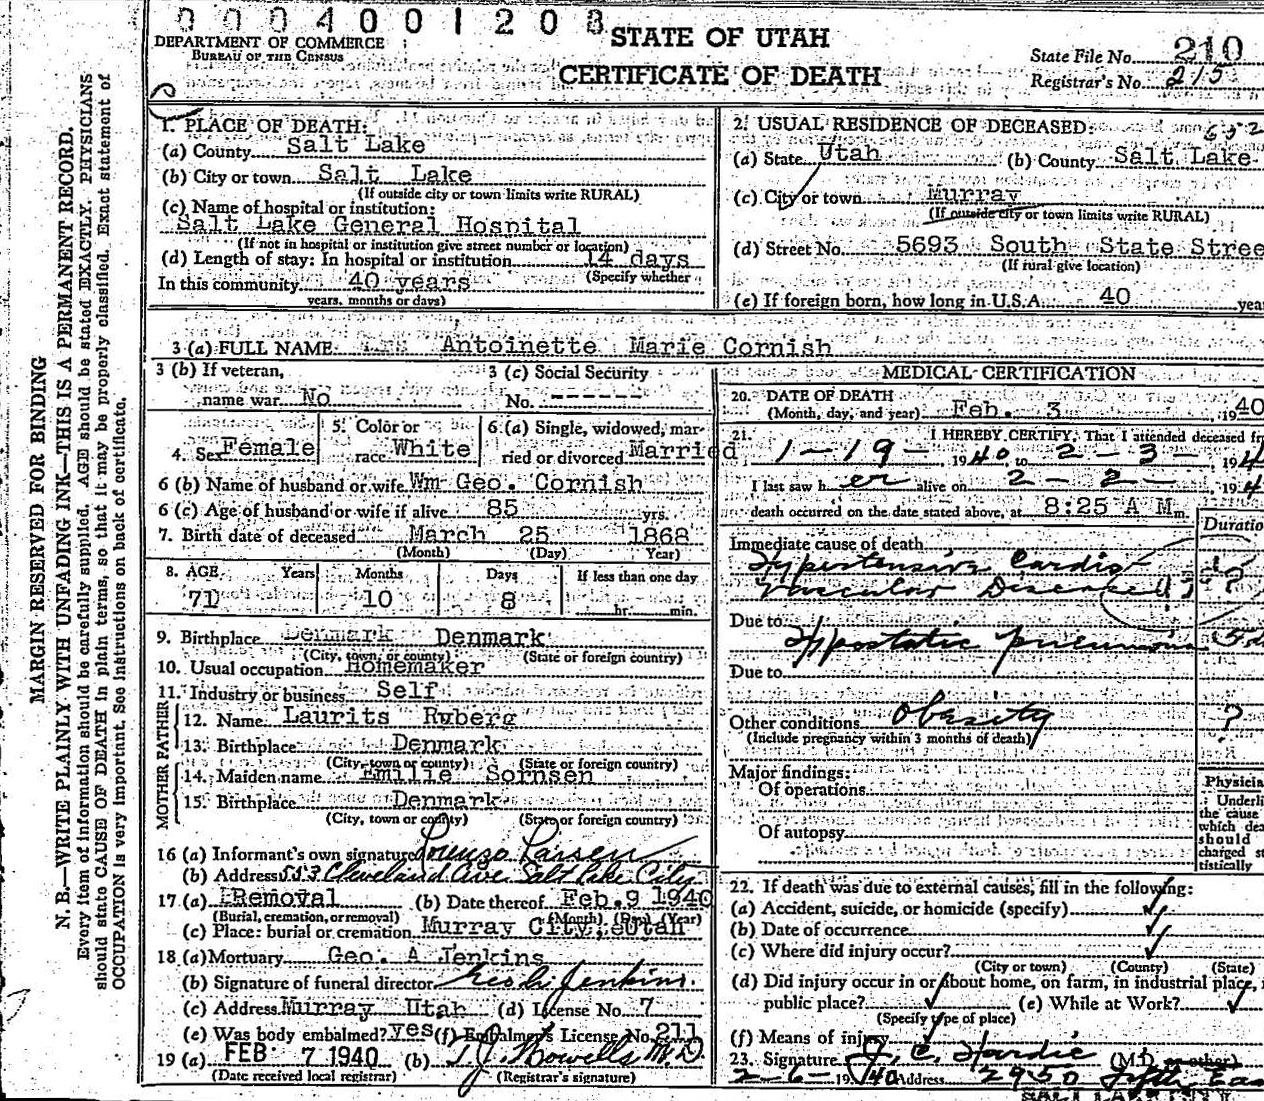 0004001208
DEPARTMENT OF COMMERCE
BUREAU OF THE CENSUS
STATE OF UTAH
CERTIFICATE OF DEATH
State File No. 210
Registrar's No. 215
MARGIN RESERVED FOR BINDING
N. B.—WRITE PLAINLY WITH UNFADING INK—THIS IS A PERMANENT RECORD.
Every item of information should be carefully supplied. AGE should be stated EXACTLY. PHYSICIANS
should state CAUSE OF DEATH in plain terms, so that it may be properly classified. Exact statement of
OCCUPATION is very important. See instructions on back of certificate.
1. PLACE OF DEATH:
(a) County Salt Lake
(b) City or town Salt Lake
(If outside city or town limits write RURAL)
(c) Name of hospital or institution:
Salt Lake General Hospital
(If not in hospital or institution give street number or location)
(d) Length of stay: In hospital or institution 14 days
(Specify whether
In this community 40 years
years, months or days)
2. USUAL RESIDENCE OF DECEASED:
(a) State Utah (b) County Salt Lake
(c) City or town Murray
(If outside city or town limits write RURAL)
(d) Street No. 5693 South State Stree
(If rural give location)
(e) If foreign born, how long in U.S.A. 40 yea
3 (a) FULL NAME Antoinette Marie Cornish
3 (b) If veteran,
name war No
3 (c) Social Security
No. ------
4. Sex Female
5. Color or
race White
6 (a) Single, widowed, mar-
ried or divorced Married
6 (b) Name of husband or wife Wm Geo. Cornish
6 (c) Age of husband or wife if alive 85 yrs.
7. Birth date of deceased March 25 1868
(Month) (Day) Year)
8. AGE Years Months Days If less than one day
71 10 8 hr. min.
9. Birthplace Denmark Denmark
(City, town, or county) (State or foreign country)
10. Usual occupation Homemaker
11. Industry or business Self
FATHER
12. Name Laurits Ryberg
13. Birthplace Denmark
(City, town or county) (State or foreign country)
MOTHER
14. Maiden name Emilie Sornsen
15. Birthplace Denmark
(City, town or county) (State or foreign country)
16 (a) Informant's own signature Lorenzo Larsen
(b) Address 553 Cleveland Ave. Salt Lake City
17 (a) Removal (b) Date thereof Feb. 9 1940
(Burial, cremation, or removal) (Month) (Day) (Year)
(c) Place: burial or cremation Murray City, Utah
18 (a) Mortuary Geo. A Jenkins
(b) Signature of funeral director Geo A. Jenkins.
(c) Address Murray Utah (d) License No. 7
(e) Was body embalmed? yes (f) Embalmer's License No. 211
19 (a) FEB 7 1940 (b) T. J. Howells M.D.
(Date received local registrar) (Registrar's signature)
MEDICAL CERTIFICATION
20. DATE OF DEATH
(Month, day, and year) Feb. 3, 1940
21. I HEREBY CERTIFY, That I attended deceased fr
1-19-, 1940, to 2-3-, 194
I last saw her alive on 2-2-, 194
death occurred on the date stated above, at 8:25 A M m.
Duratio
Immediate cause of death
Hypertensive Cardio
Vascular Disease
?
Due to
Hypostatic pneumonia 5d
Due to
Other conditions Obesity ?
(Include pregnancy within 3 months of death)
Major findings:
Of operations
Of autopsy
Physicia
Underli
the cause
which dea
should
charged st
tistically
22. If death was due to external causes, fill in the following:
(a) Accident, suicide, or homicide (specify)
(b) Date of occurrence
(c) Where did injury occur?
(City or town) (County) (State)
(d) Did injury occur in or about home, on farm, in industrial place, i
public place? (e) While at Work?
(Specify type of place)
(f) Means of injury
23. Signature J. C. Hardie (M.D. or other)
2-6-1940 Address 2950 Fifth Eas